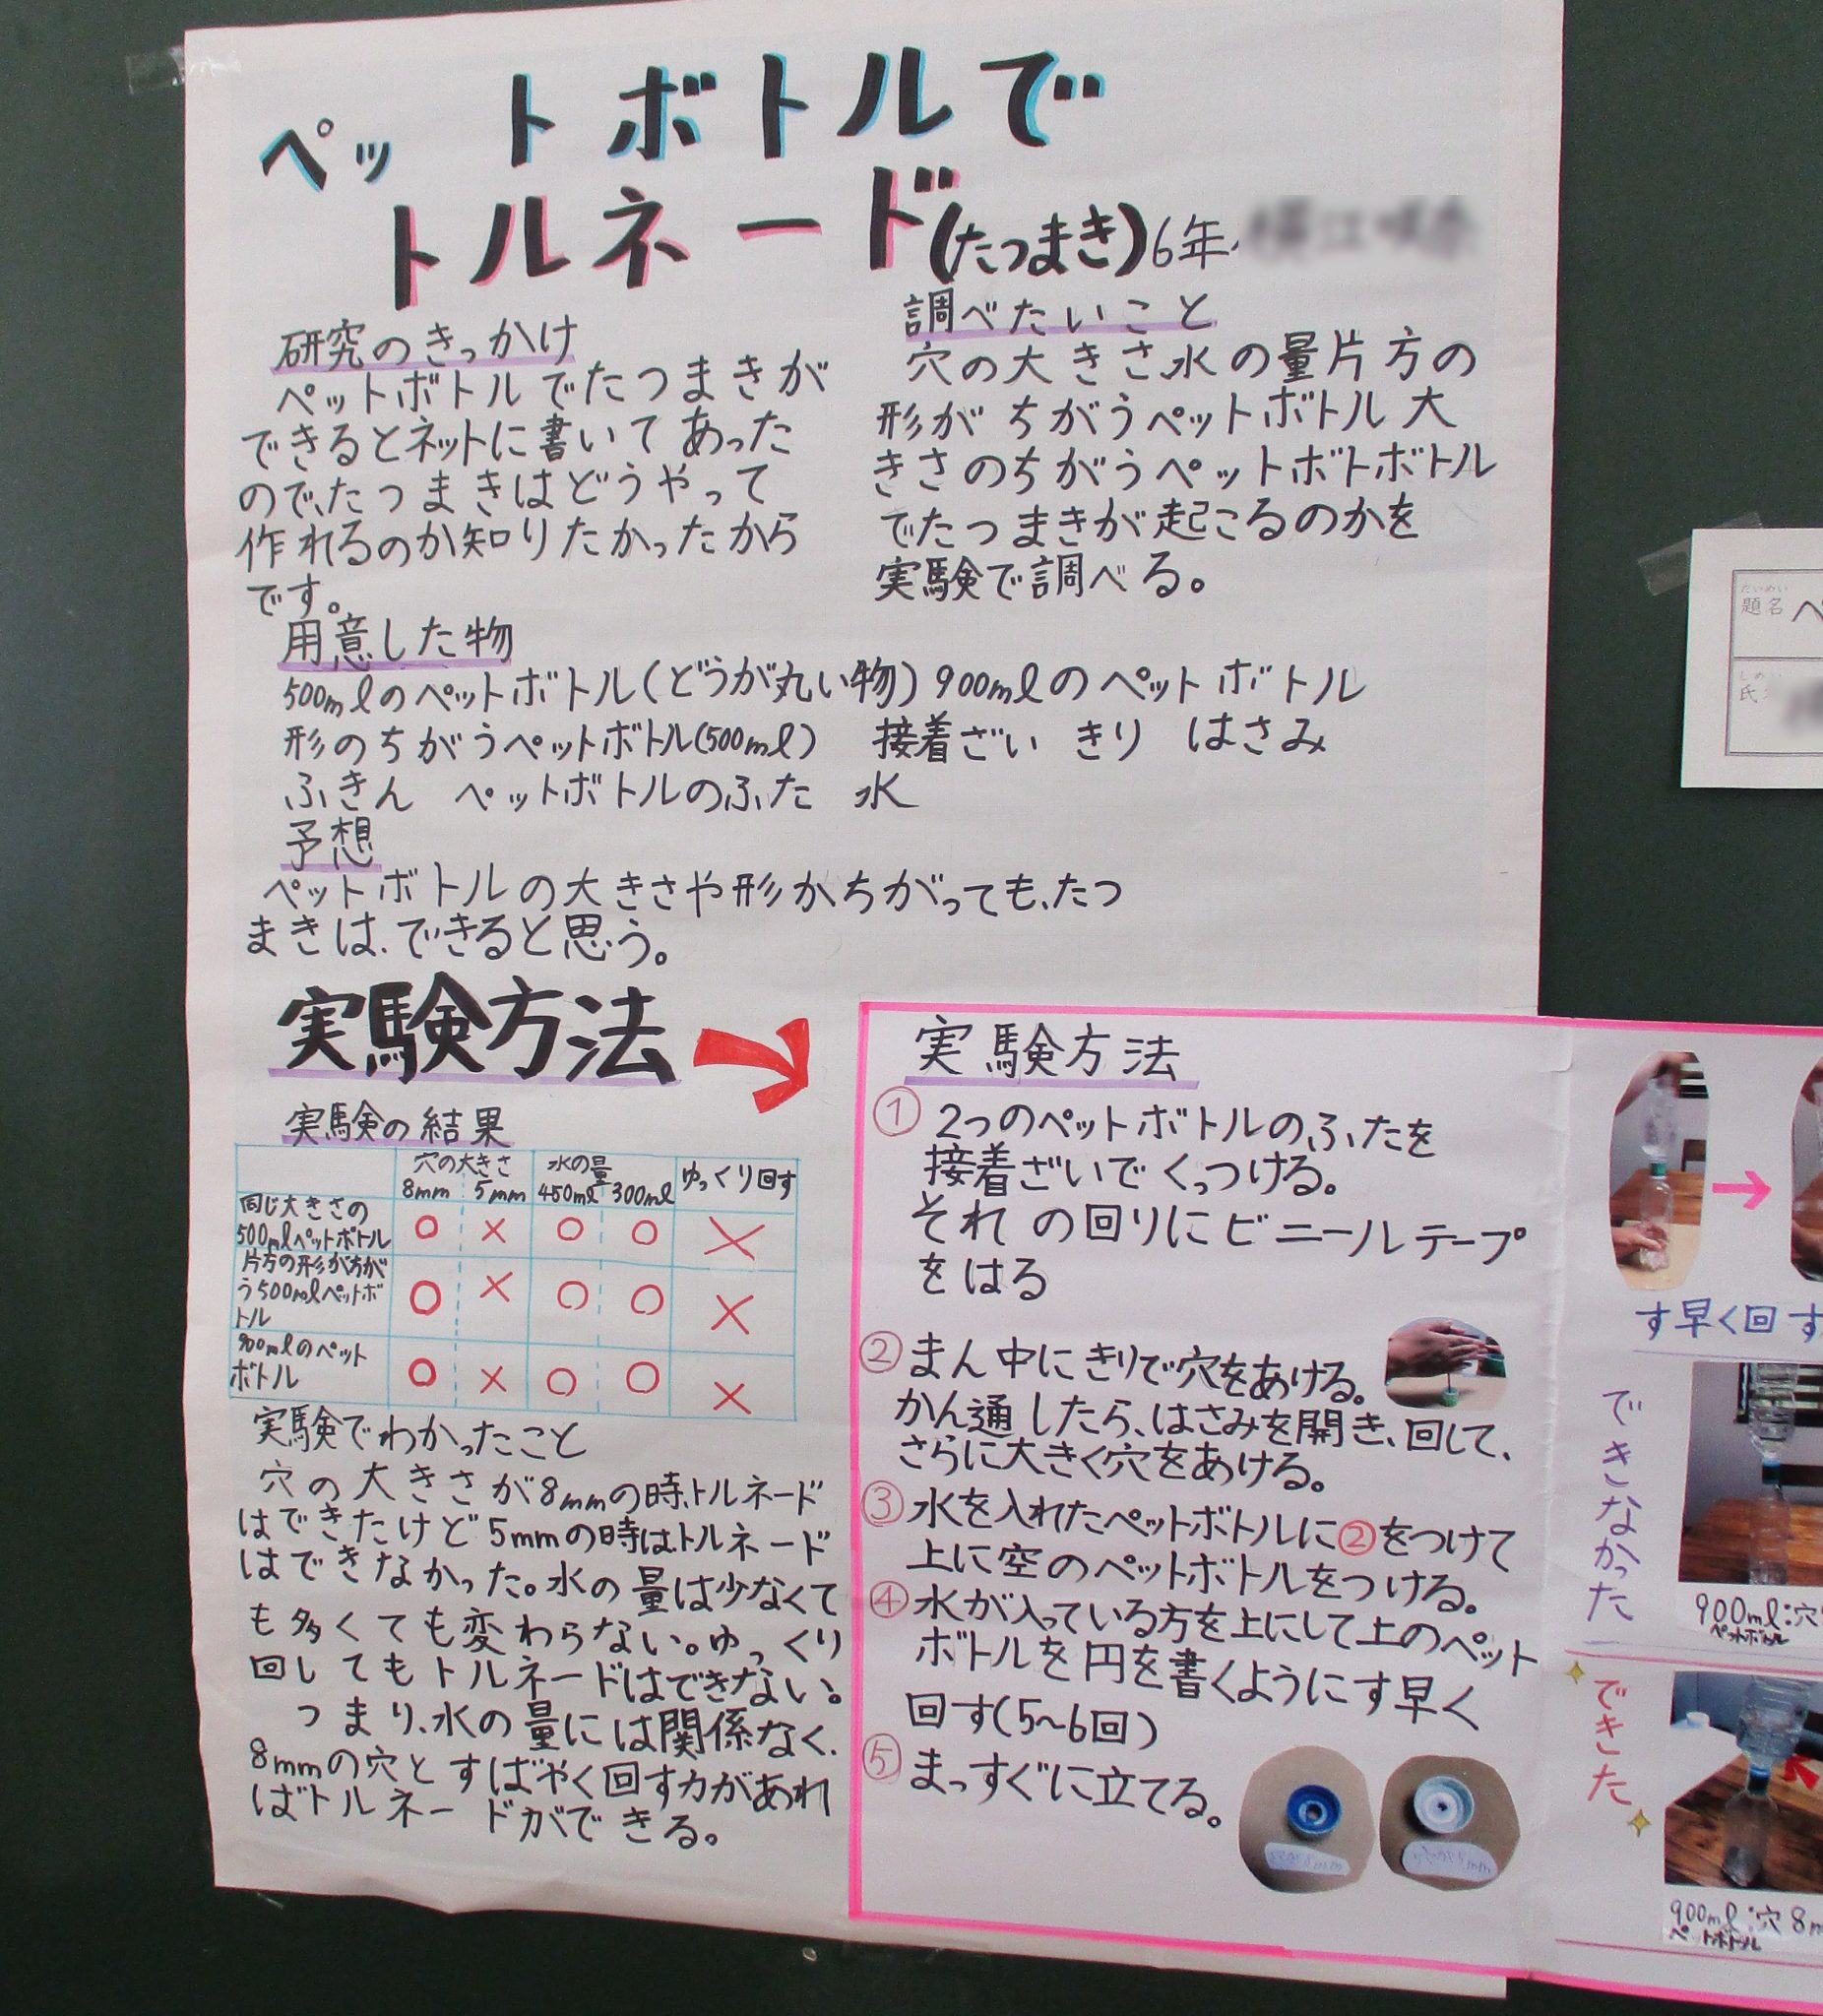 ペットボトルで
トルネード(たつまき)6年
研究のきっかけ
ペットボトルでたつまきが
できるとネットに書いてあった
ので、たつまきはどうやって
作れるのか知りたかったから
です。
調べたいこと
穴の大きさ、水の量片方の
形がちがうペットボトル大
きさのちがうペットボトボトル
でたつまきが起こるのかを
実験で調べる。
用意した物
500mlのペットボトル(どうが丸い物) 900mlのペットボトル
形のちがうペットボトル(500ml) 接着ざい きり はさみ
ふきん ペットボトルのふた 水
予想
ペットボトルの大きさや形がちがっても、たつ
まきは、できると思う。
実験方法
実験の結果
穴の大きさ 水の量 ゆっくり回す
8mm 5mm 450ml 300ml
同じ大きさの
500mlペットボトル ○ × ○ ○ ×
片方の形がちが
う500mlペットボ ○ × ○ ○ ×
トル
900mlのペット
ボトル ○ × ○ ○ ×
実験でわかったこと
穴の大きさが8mmの時、トルネード
はできたけど5mmの時はトルネード
はできなかった。水の量は少なくて
も多くても変わらない。ゆっくり
回してもトルネードはできない。
つまり、水の量には関係なく、
8mmの穴とすばやく回す力があれ
ばトルネードができる。
実験方法
① 2つのペットボトルのふたを
接着ざいでくっつける。
それの回りにビニールテープ
をはる
② まん中にきりで穴をあける。
かん通したら、はさみを開き、回して、
さらに大きく穴をあける。
③ 水を入れたペットボトルに②をつけて
上に空のペットボトルをつける。
④ 水が入っている方を上にして上のペット
ボトルを円を書くようにす早く
回す(5〜6回)
⑤ まっすぐに立てる。
す早く回す
できなかった
900ml:穴
ペットボトル
できた
900ml:穴8m
ペットボトル
だいめい
題名 ペ
しめい
氏